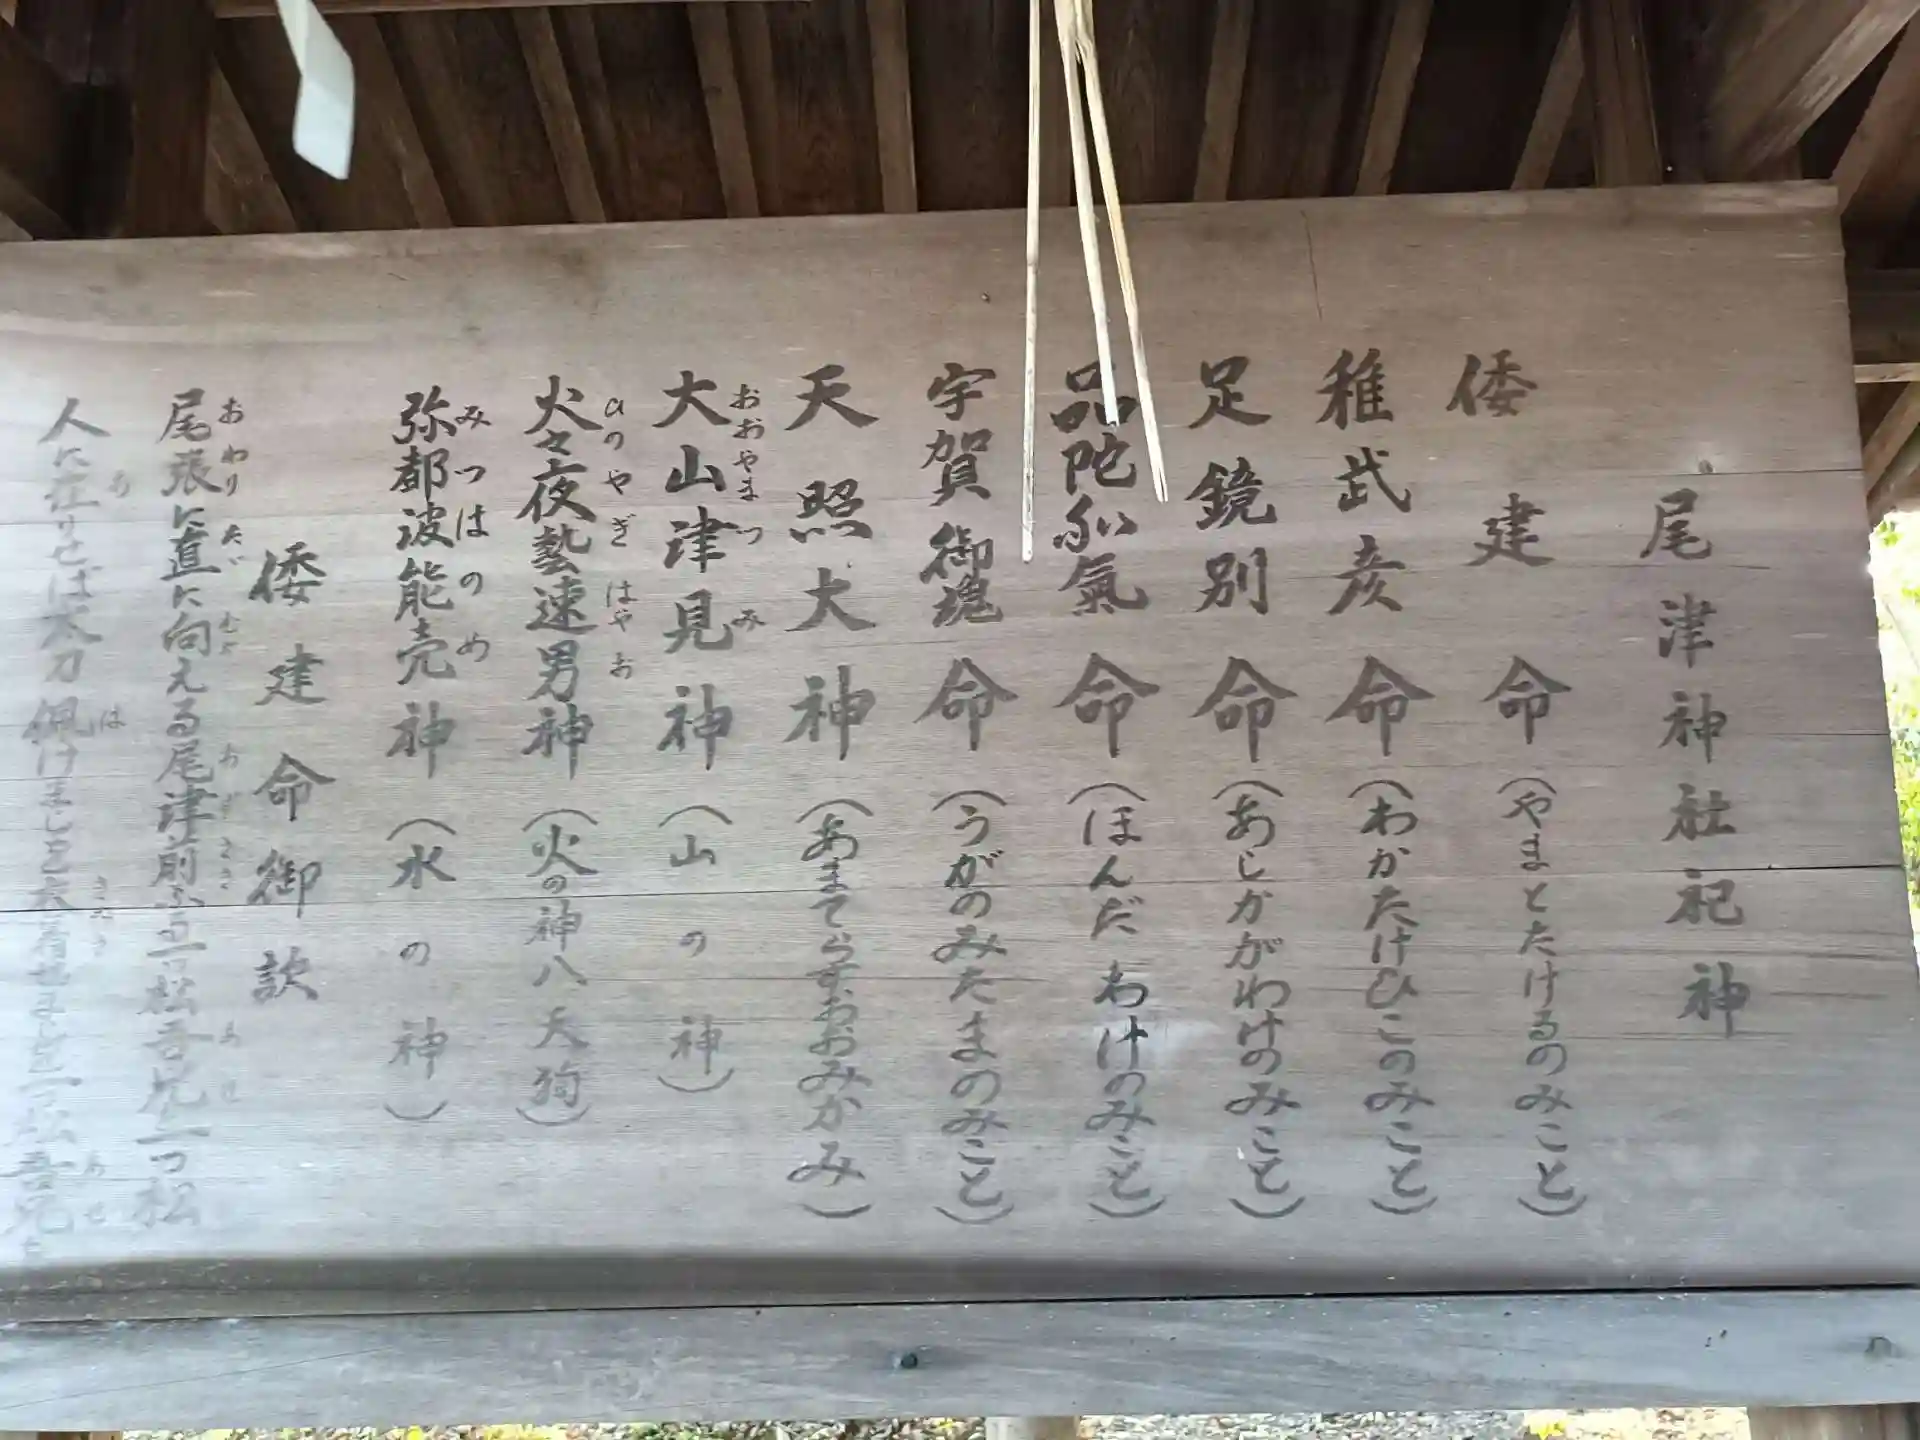 尾津神社祀神
倭建命(やまとたけるのみこと)
稚武彦命(わかたけひこのみこと)
足鏡別命(あしかがわけのみこと)
品陀和氣命(ほんだわけのみこと)
宇賀御魂命(うがのみたまのみこと)
天照大神(あまてらすおおみかみ)
大山津見神(山の神)
おおやまつみ
火々夜藝速男神(火の神八天狗)
ひのやぎはやお
弥都波能売神(水の神)
みつはのめ
倭建命御歌
尾張に直に向える尾津前なる一つ松吾兄一つ松
おわり ただ むか おずさき あせ
人に在りせば太刀佩けましを
あ は